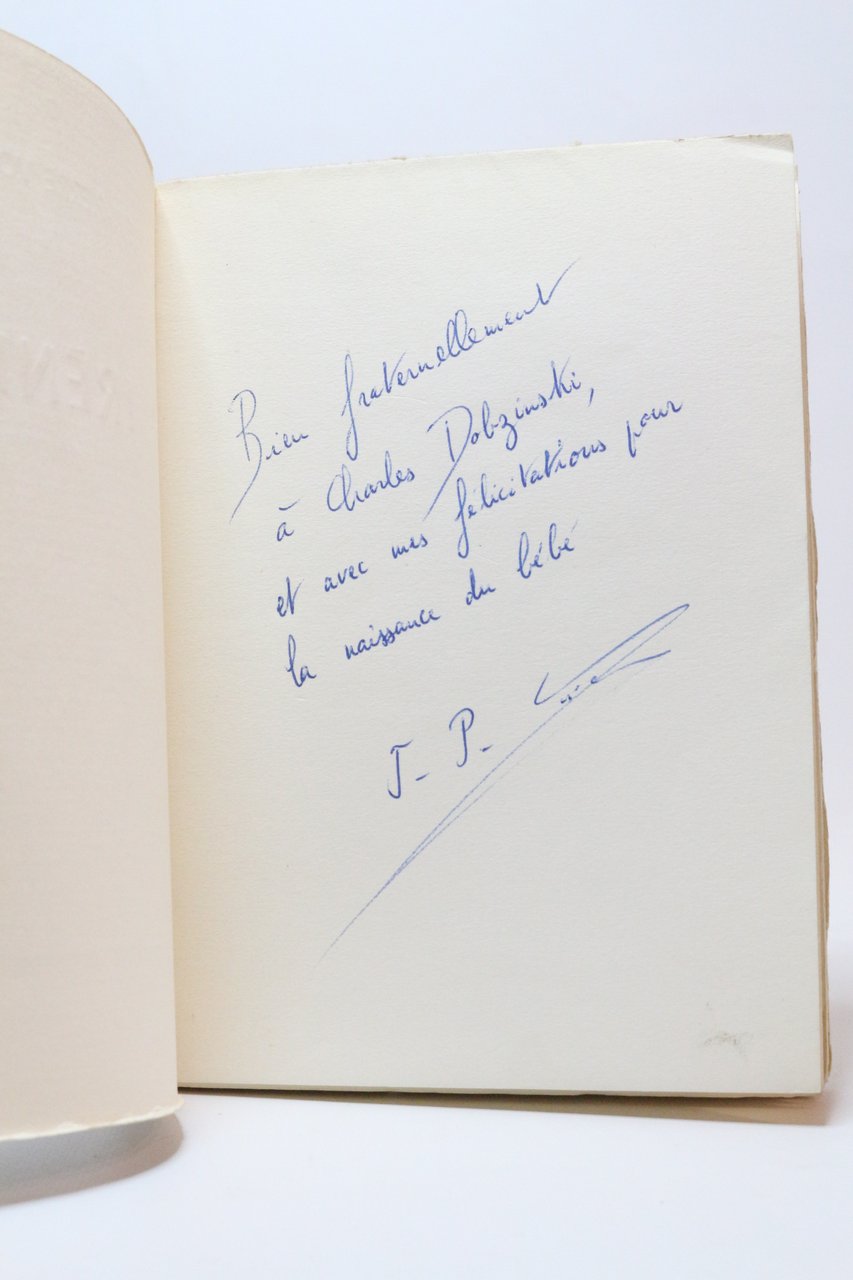 Bien fraternellement
à Charles Dobzinski,
et avec mes félicitations pour
la naissance du bébé
J-P-